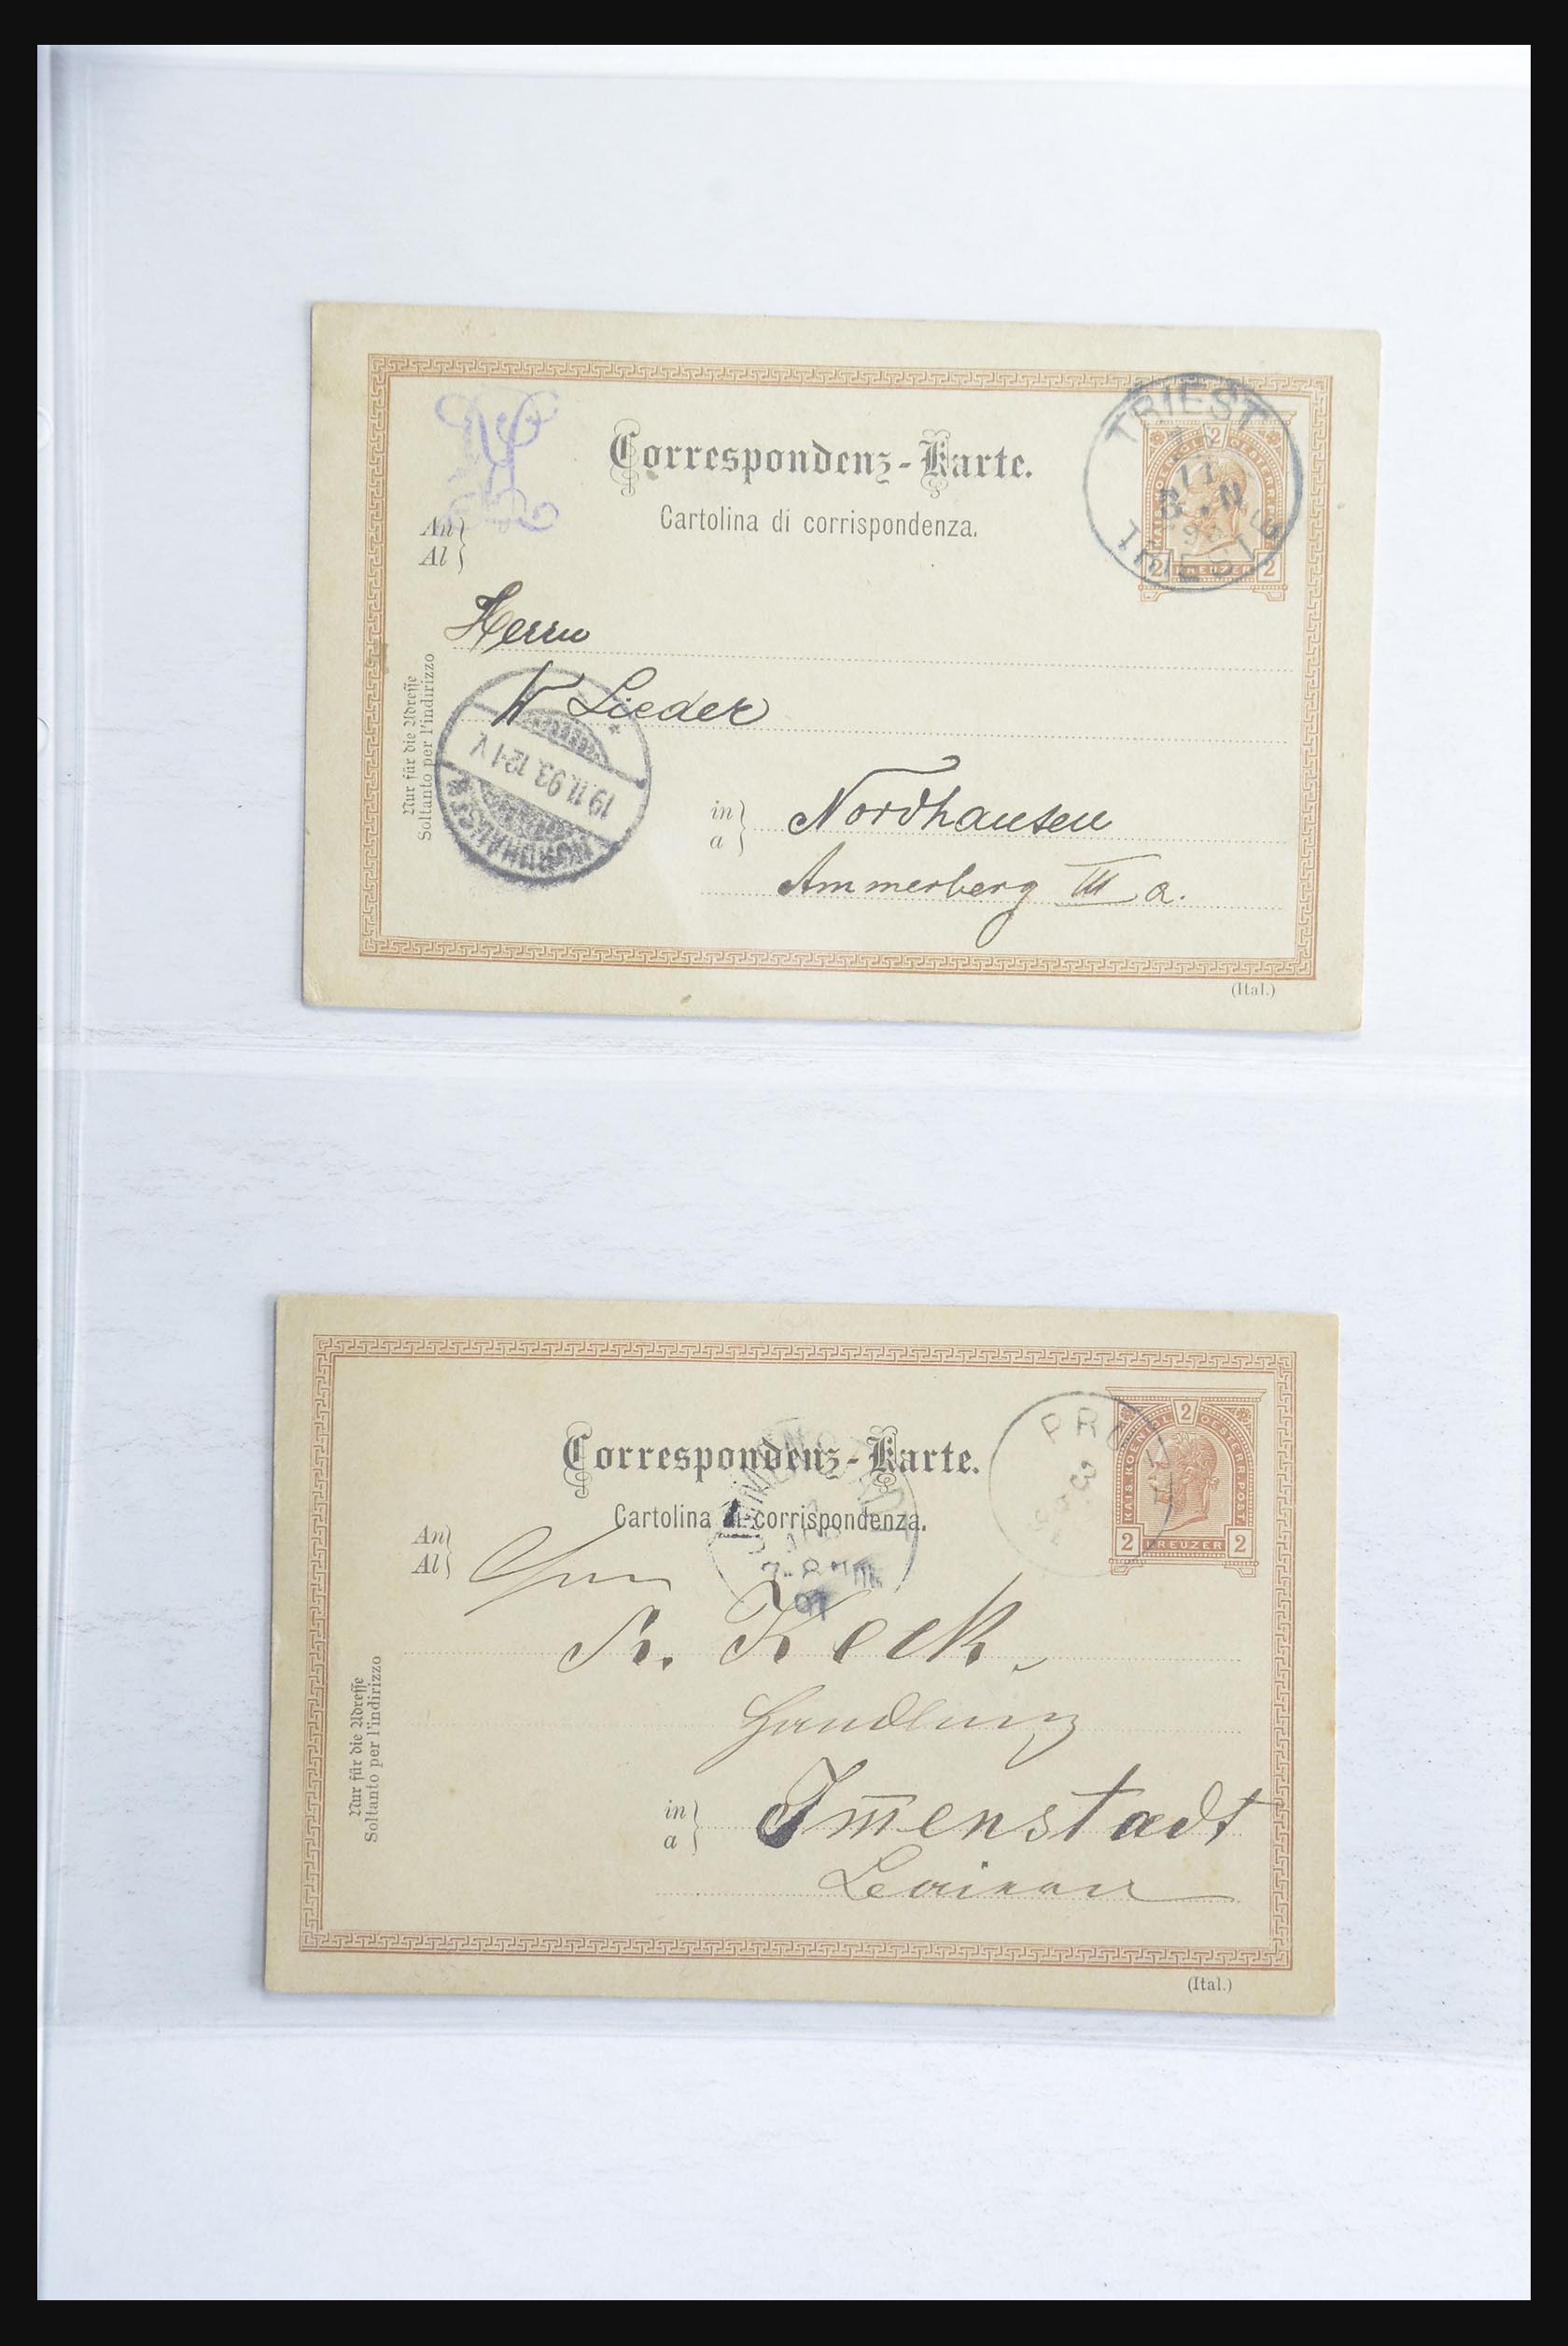 Correspondenz-Karte.
Cartolina di corrispondenza.
An
Al
TRIEST
TRIEST
KAIS. KOENIGL. OESTERR. POST
2
2 KREUZER 2
Herrn
W Lieder
in
a
Nordhausen
Ammerberg III a.
Nur für die Adresse
Soltanto per l'indirizzo
NORDHAUSEN
19.11.93. 12-1 V.
(Ital.)
Correspondenz-Karte.
Cartolina di corrispondenza.
An
Al
KAIS. KOENIGL. OESTERR. POST
2
2 KREUZER 2
7-8
Keck
Handlung
in
a
Im̄enstadt
Nur für die Adresse
Soltanto per l'indirizzo
(Ital.)